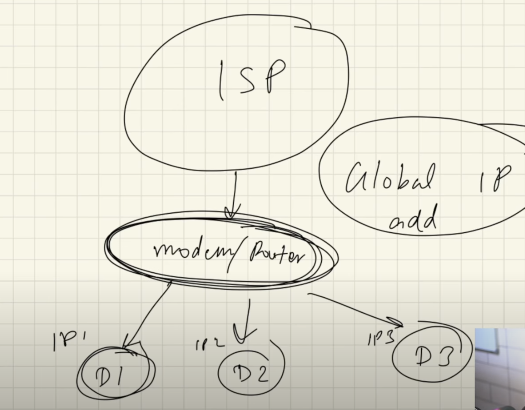 ISP
Global IP
add
modem/Router
IP1
IP2
IP3
D1
D2
D3